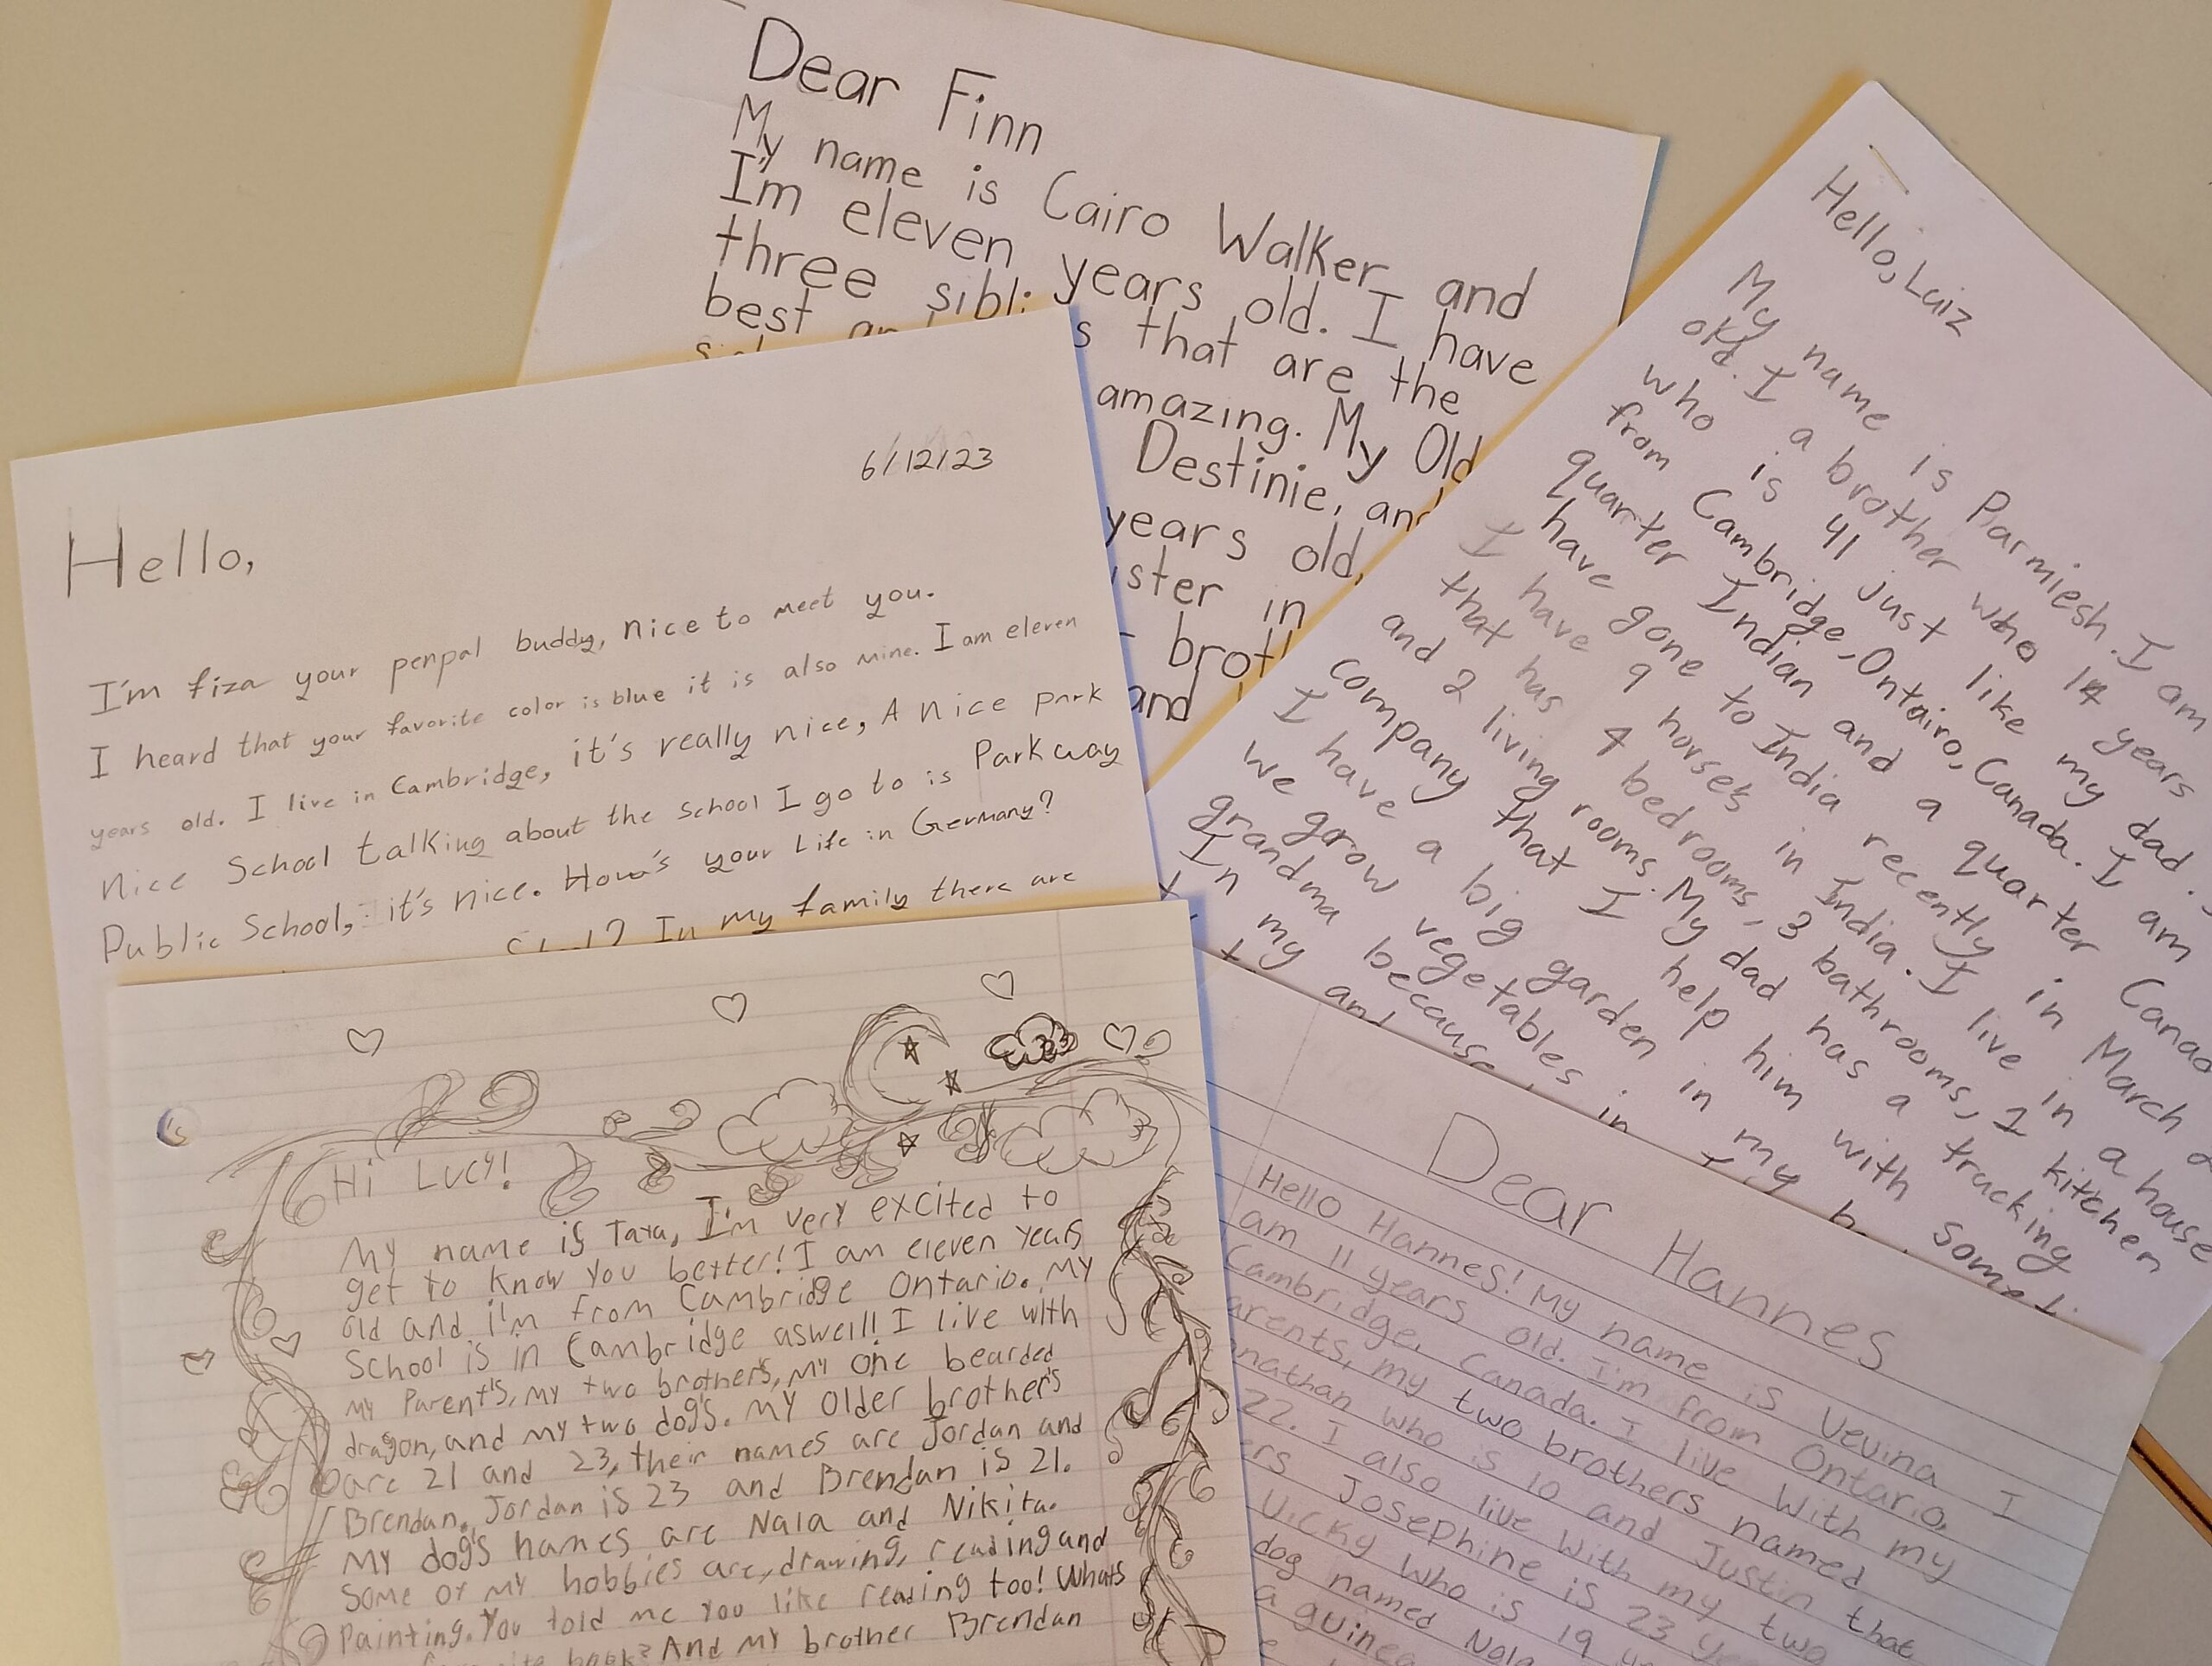 Dear Finn
My name is Cairo Walker and
I'm eleven years old. I have
three sibl s that are the
best amazing. My Old
Destinie, and
years old,
ister in
brot
and
Hello, Luiz
My name is Parmiesh. I am
old. I a brother who 14 years
who is 41 just like my dad.
from Cambridge, Ontairo, Canada. I am
quarter Indian and a quarter Canad
have gone to India recently in March
I have 9 horses in India. I live in a house
that has 4 bedrooms, 3 bathrooms, 1 kitchen
and 2 living rooms. My dad has a trucking
company that I help him with
I have a big garden in my
we grow vegetables in my
grandma because
In my
and
6/12/23
Hello,
I'm fiza your penpal buddy, nice to meet you.
I heard that your favorite color is blue it is also mine. I am eleven
years old. I live in Cambridge, it's really nice, A nice park
nice School talking about the school I go to is Parkway
Public School, it's nice. How's your Life in Germany?
In my family there are
Hi Lucy!
My name is Tara, I'm very excited to
get to know you better! I am eleven years
old and i'm from Cambridge Ontario. My
School is in Cambridge aswell! I live with
my Parent's, my two brother's, my one bearded
dragon, and my two dog's. My older brother's
are 21 and 23, their names are Jordan and
Brendan. Jordan is 23 and Brendan is 21.
My dog's names are Nala and Nikita.
Some of my hobbies are, drawing, reading and
Painting. You told me you like reading too! Whats
book? And my brother Brendan
Dear Hannes
Hello Hannes! My name is Vevina I
am 11 years old. I'm from Ontario,
Cambridge, Canada. I live with my
arents, my two brothers named
nathan who is 10 and Justin that
22. I also live with my two
ers Josephine is 23
Vicky who is 19
dog named Nala
a guinea